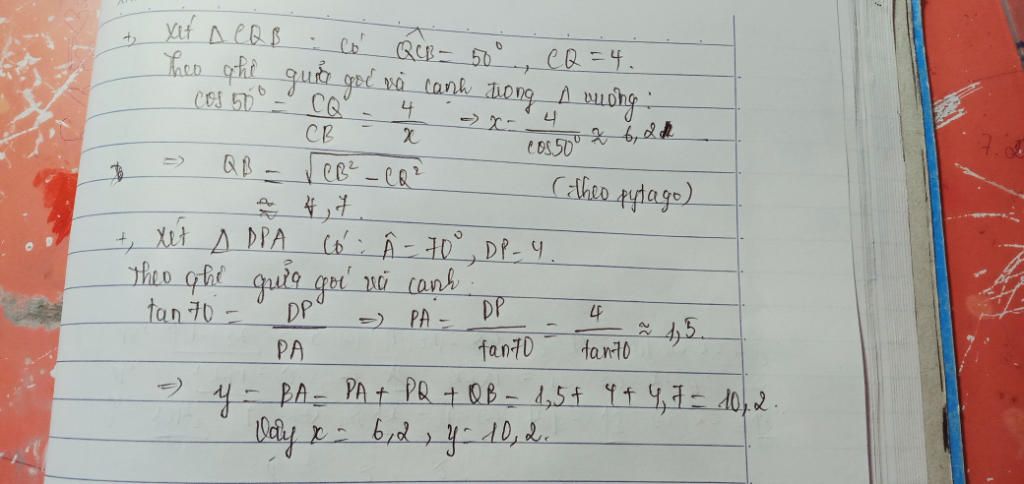 +, Xét Δ CQB : có Q̂CB = 50°, CQ = 4.
Theo qhê giữa góc và cạnh trong Δ vuông:
cos 50° = CQ/CB = 4/x ⇒ x = 4/cos50° ≈ 6,2
⇒ QB = √(CB² - CQ²) (Theo pytago)
≈ 4,7.
+, Xét Δ DPA có: Â = 70°, DP = 4.
Theo qhê giữa góc và cạnh.
tan 70 = DP/PA ⇒ PA = DP/tan70 = 4/tan70 ≈ 1,5.
⇒ y = BA = PA + PQ + QB = 1,5 + 4 + 4,7 = 10,2.
Vậy x = 6,2, y = 10,2.